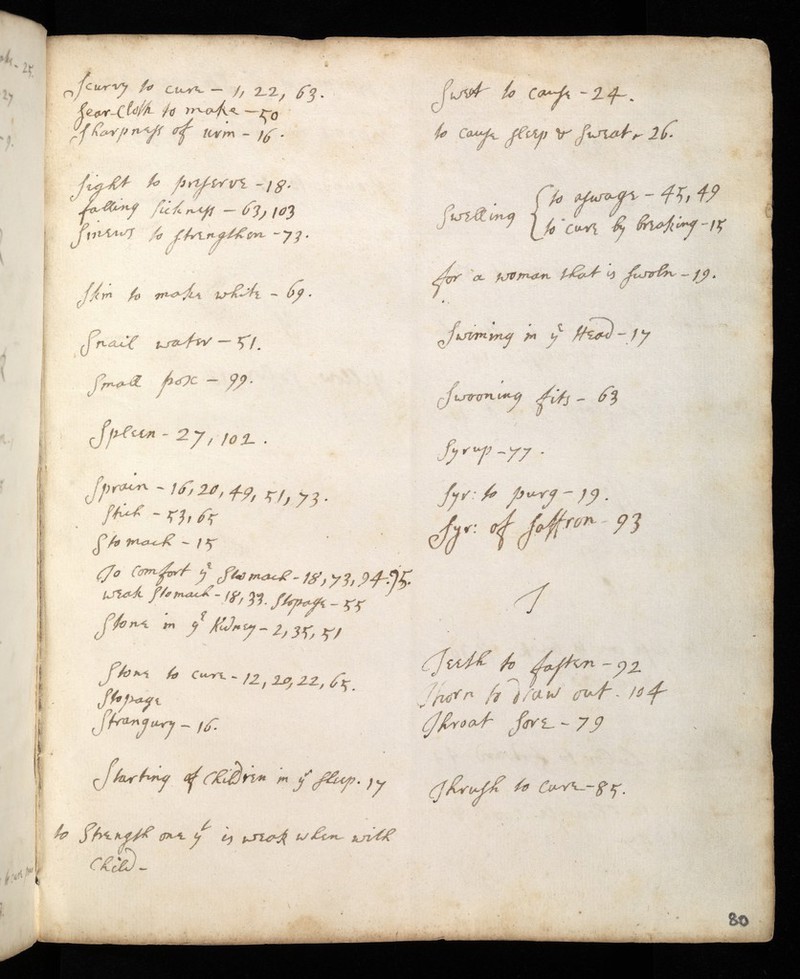 Scurvy to cure - 1, 22, 63.
Sear-Cloth to make - 50
Sharpness of urin - 16.
sight to preserve - 18.
falling sickness - 63, 103
Sinews to strengthen - 73.
Skin to make white - 69.
Snail water - 51.
Small pox - 99.
Spleen - 27, 102.
Sprain - 16, 20, 49, 51, 73.
Stich - 53, 65
Stomach - 15
To comfort yͤ Stomach - 18, 73, 74. 75.
weak Stomach - 18, 33. Stopage - 55
Stone in yͤ Kidney - 2, 35, 51
Stone to cure - 12, 20, 22, 65.
Stopage
Strangury - 16.
Starting of Children in yͤ sleep. 17
to Strength one yͭ is weak when with
Child -
Swet to cause - 24.
to cause sleep & sweat - 26.
Swelling { to aswage - 45, 49
to cure by breaking - 15
for a woman that is swoln - 19.
Swiming in yͤ Head - 17
Swooning fits - 63
Syrup - 77.
Syr: to purg - 19.
Syr: of saffron - 93
T
Teeth to fasten - 92
Thorn to draw out. 104
Throat sore - 79
Thrush to cure - 85.
80